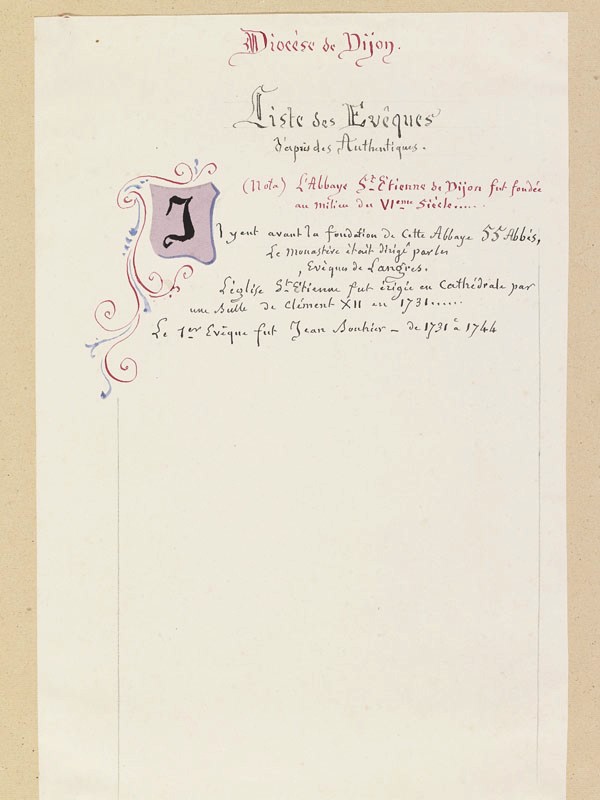 Diocèse de Dijon.
Liste des Evêques
d'après des Authentiques.
(Nota) L'Abbaye St Etienne de Dijon fut fondée
au milieu du VIeme Siècle.....
Il y eut avant la fondation de cette Abbaye 55 Abbés,
Le monastère était dirigé par les
, Evêques de Langres.
L'église St Etienne fut érigée en Cathédrale par
une Bulle de Clément XII en 1731.....
Le 1er Evêque fut Jean Bouhier – de 1731 à 1744